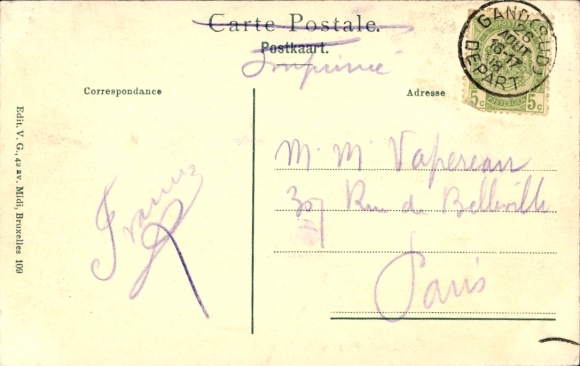 Carte Postale.
Postkaart.
Imprimé
GAND (SUD)
26
AOUT
16-17
DEPART
5c 5c
Correspondance
Adresse
M. M Vapereau
Rue de Belleville
Paris
Edit. V. G., 42 av. Midi, Bruxelles 109